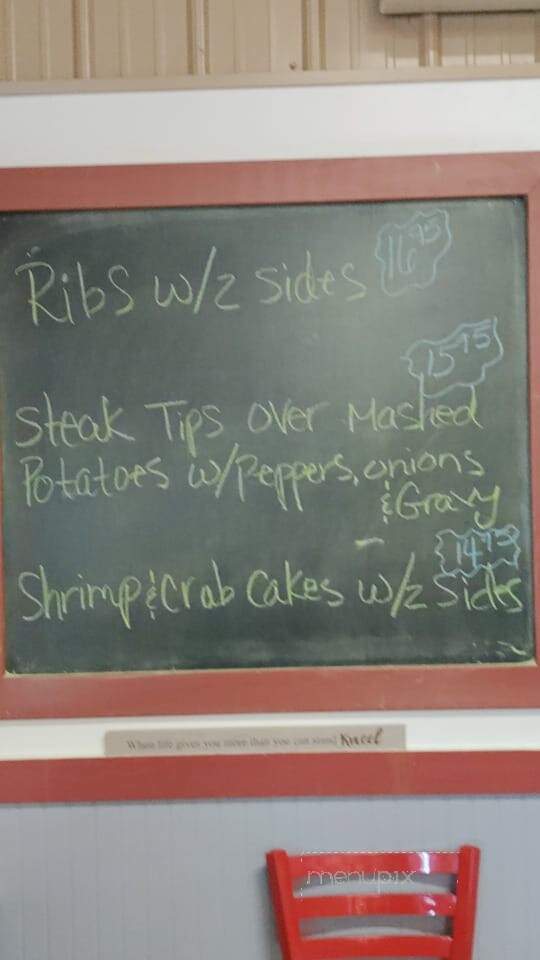 Ribs w/2 sides 16.95
15.95
Steak Tips over Mashed
Potatoes w/Peppers, onions
& Gravy
14.95
Shrimp & Crab Cakes w/2 Sides
When life gives you more than you can stand Kneel
menupix